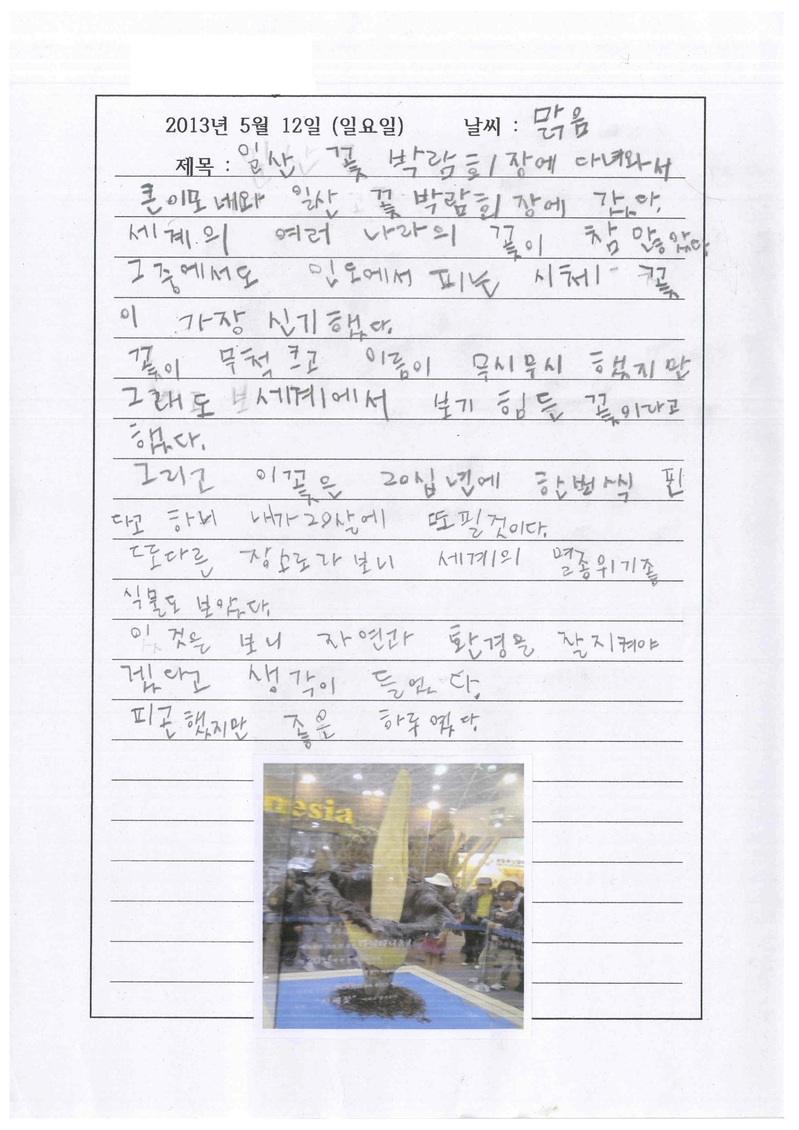 2013년 5월 12일 (일요일) 날씨 : 맑음
제목 : 일산 꽃 박람회장에 다녀와서
큰이모네와 일산 꽃 박람회장에 갔다.
세계의 여러 나라의 꽃이 참 많았다
그중에서도 인도에서 피는 시체 꽃
이 가장 신기했다.
꽃이 무척 크고 이름이 무시무시 했지만
그래도 세계에서 보기 힘든 꽃이라고
했다.
그리고 이꽃은 20십년에 한번식 핀
다고 하니 내가 28살에 또필것이다.
또다른 장소로가 보니 세계의 멸종위기종
식물도 보았다.
이것을 보니 자연과 환경을 잘지켜야
겠다고 생각이 들었다.
피곤했지만 좋은 하루였다
nesia